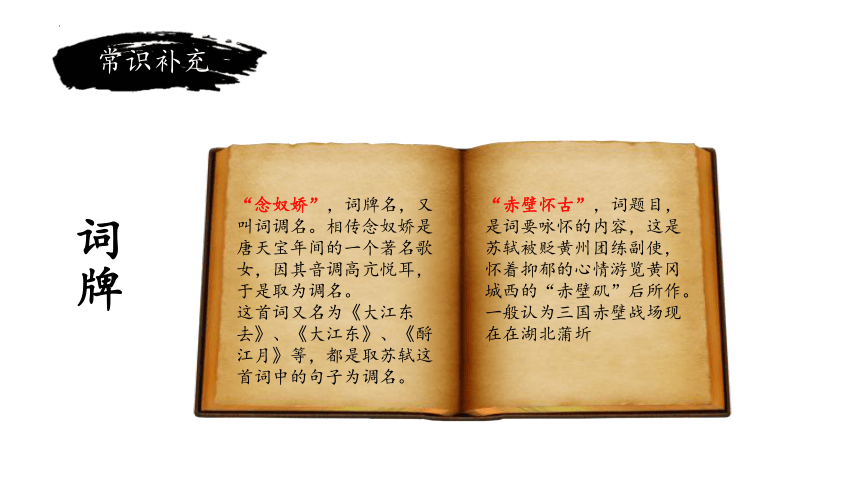 常识补充
词
牌
“念奴娇”，词牌名，又
叫词调名。相传念奴娇是
唐天宝年间的一个著名歌
女，因其音调高亢悦耳，
于是取为调名。
这首词又名为《大江东
去》、《大江东》、《酹
江月》等，都是取苏轼这
首词中的句子为调名。
“赤壁怀古”，词题目，
是词要咏怀的内容，这是
苏轼被贬黄州团练副使，
怀着抑郁的心情游览黄冈
城西的“赤壁矶”后所作。
一般认为三国赤壁战场现
在在湖北蒲圻